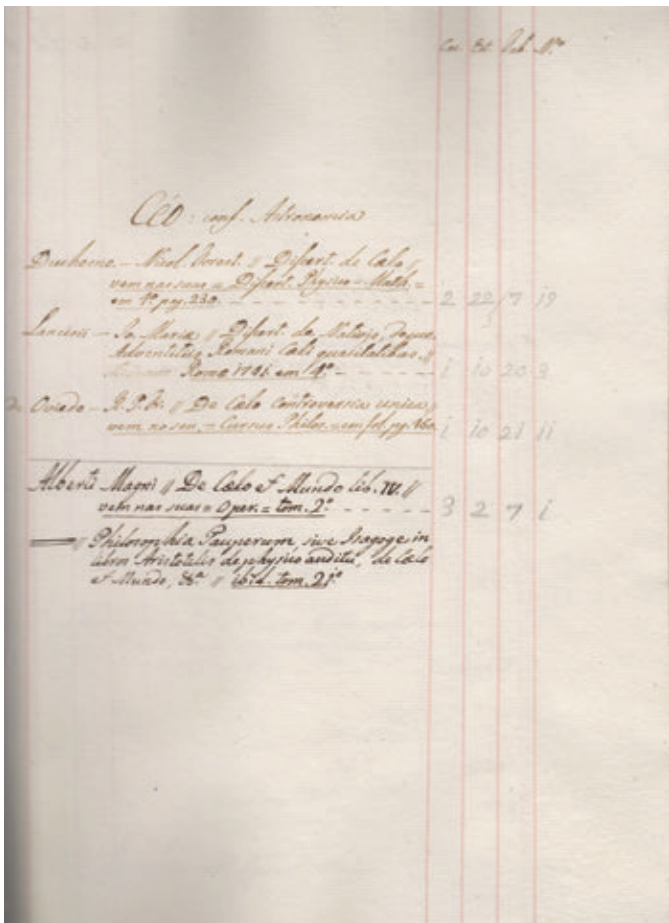 Cas. Est. Pab. Nº
CÉO: conf. Astronomia
Duchesne – Nicol. // Dissert. de Cælo //
vem nas suas = Dissert. Physico-Math. =
em 4º pag. 230. 2 22 7 19
Lancisii – Jo. Maria // Dissert. de Nativis, deque
Adventitiis Romani Cæli qualitatibus //
Romæ 1711 em 4º i 10 20 3
de Oviedo – R. P. Fr. // De Cælo Controversia unica //
vem no seu = Cursus Philos. = em fol. pag. i 10 21 11
Alberti Magni // De Cælo et Mundo lib. IV. //
vem nas suas = Oper. = tom. 2º 3 2 7 i
// Philosophia Pauperum, sive Isagoge in
libros Aristotelis de physico auditu, de cælo
et Mundo, &ª // ibid. tom. 21º